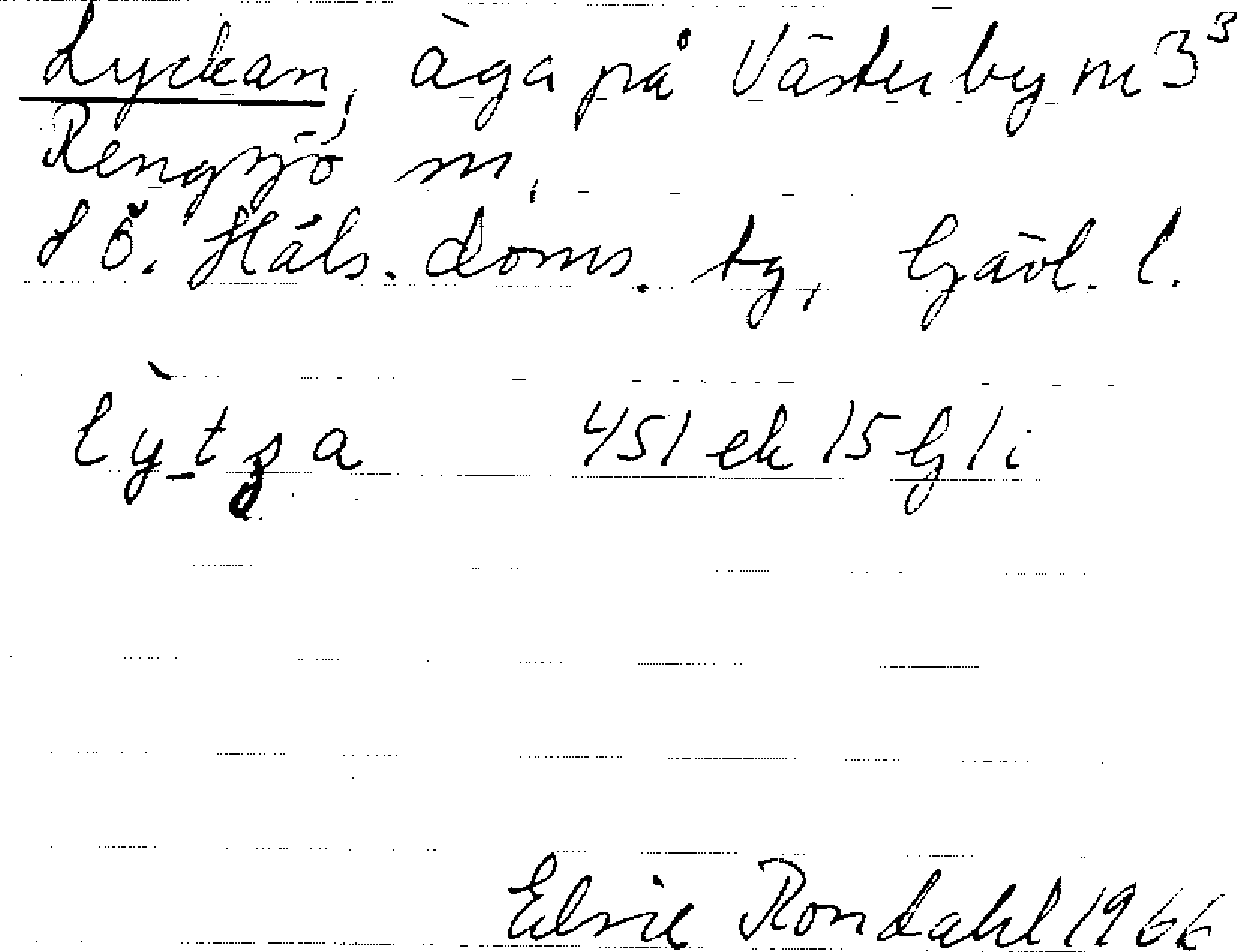 Lyckan, äga på Västerby nr 3³
Rengsjö sn,
SÖ. Häls. doms. tg, Gävl. l.
lỳtza 451 ek 15 Gj 1 i
Elsie Rondahl 1966